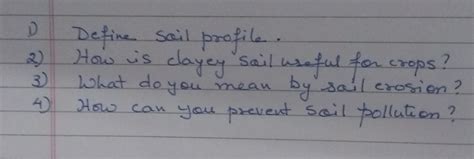 1) Define soil profile.
2) How is clayey soil useful for crops?
3) What do you mean by soil erosion?
4) How can you prevent soil pollution?